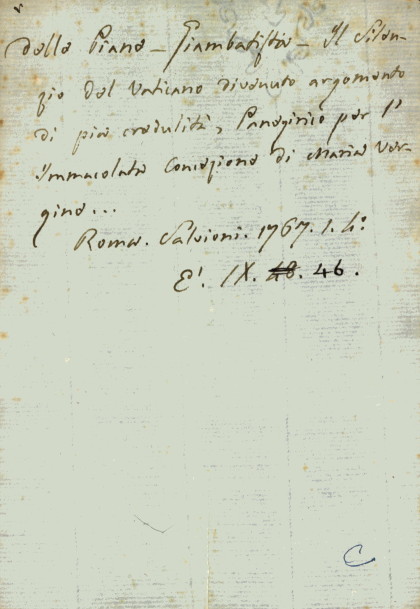 Dalle Piane - Giambatista - Il Silen-
zio del Vaticano divenuto argomento
di pia credulità, Panegirico per l'
Immacolata Concezione di Maria Ver-
gine...
Roma. Salvioni. 1767. 1. 4°.
E'. IX. 48. 46.
C